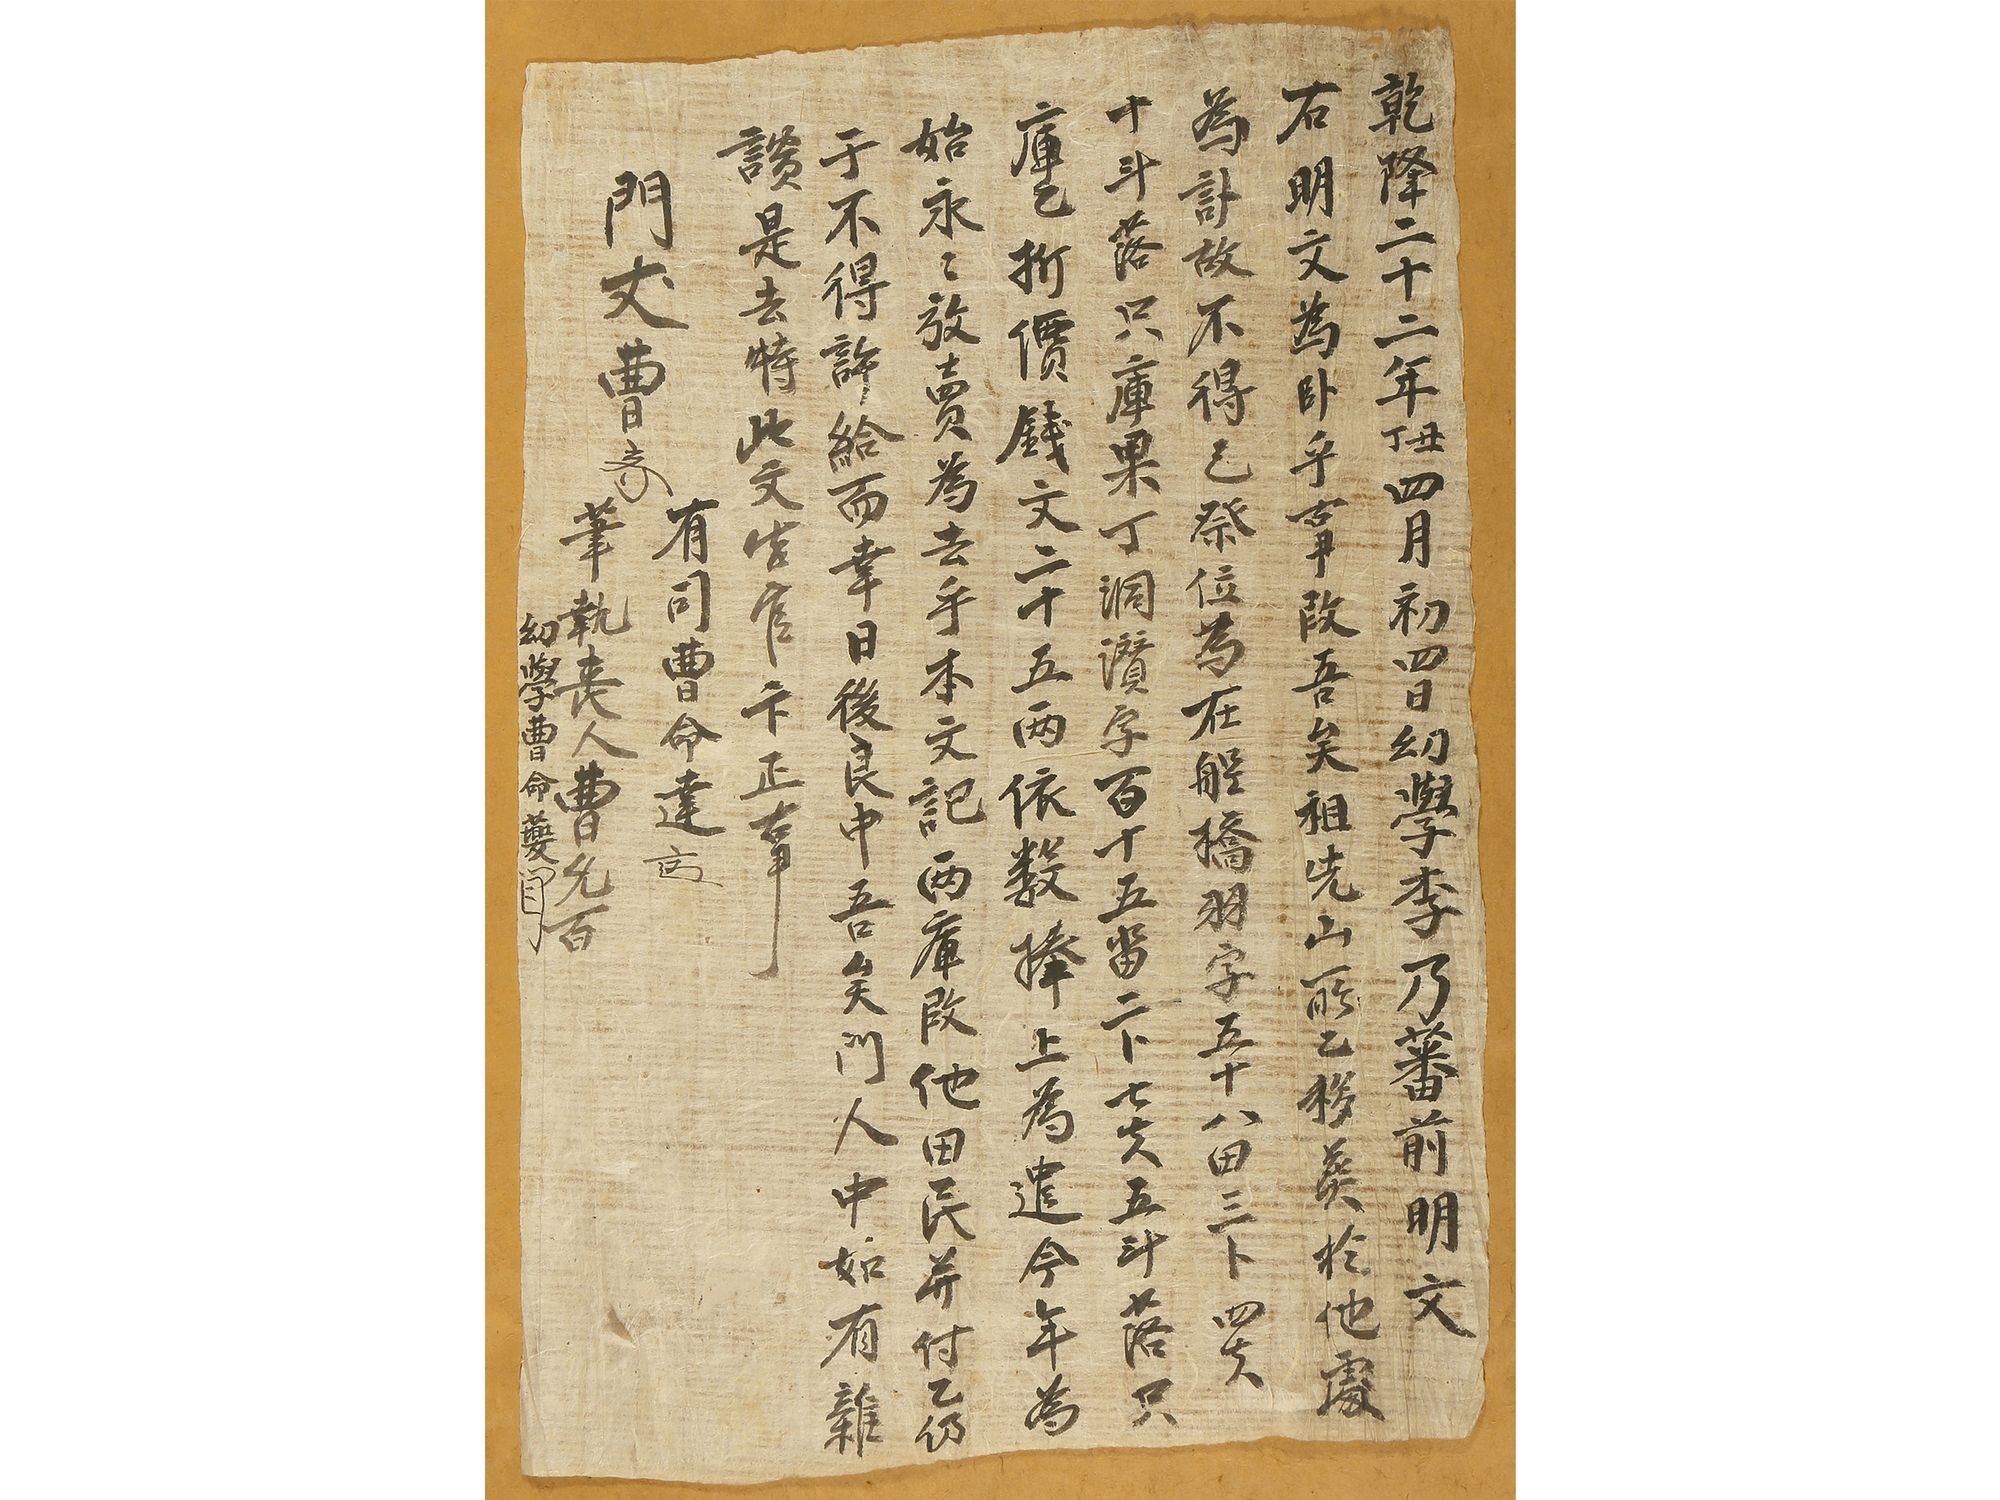 乾隆二十二年丁丑四月初四日幼學李乃蕃前明文
右明文爲卧乎事段吾矣祖先山所乙移葬於他處
爲計故不得已祭位爲在船橋羽字五十八田三卜四夫
十斗落只庫果丁洞讚字百十五畓二卜七夫五斗落只
庫乙折價錢文二十五兩依數捧上爲遣今年爲
始永〻放賣爲去乎本文記兩庫段他田民并付乙仍
于不得許給而幸日後良中吾矣門人中如有雜
談是去等此文告官卞正事
門丈曹
有司曹命達
筆執喪人曹允百
幼學曹命夔